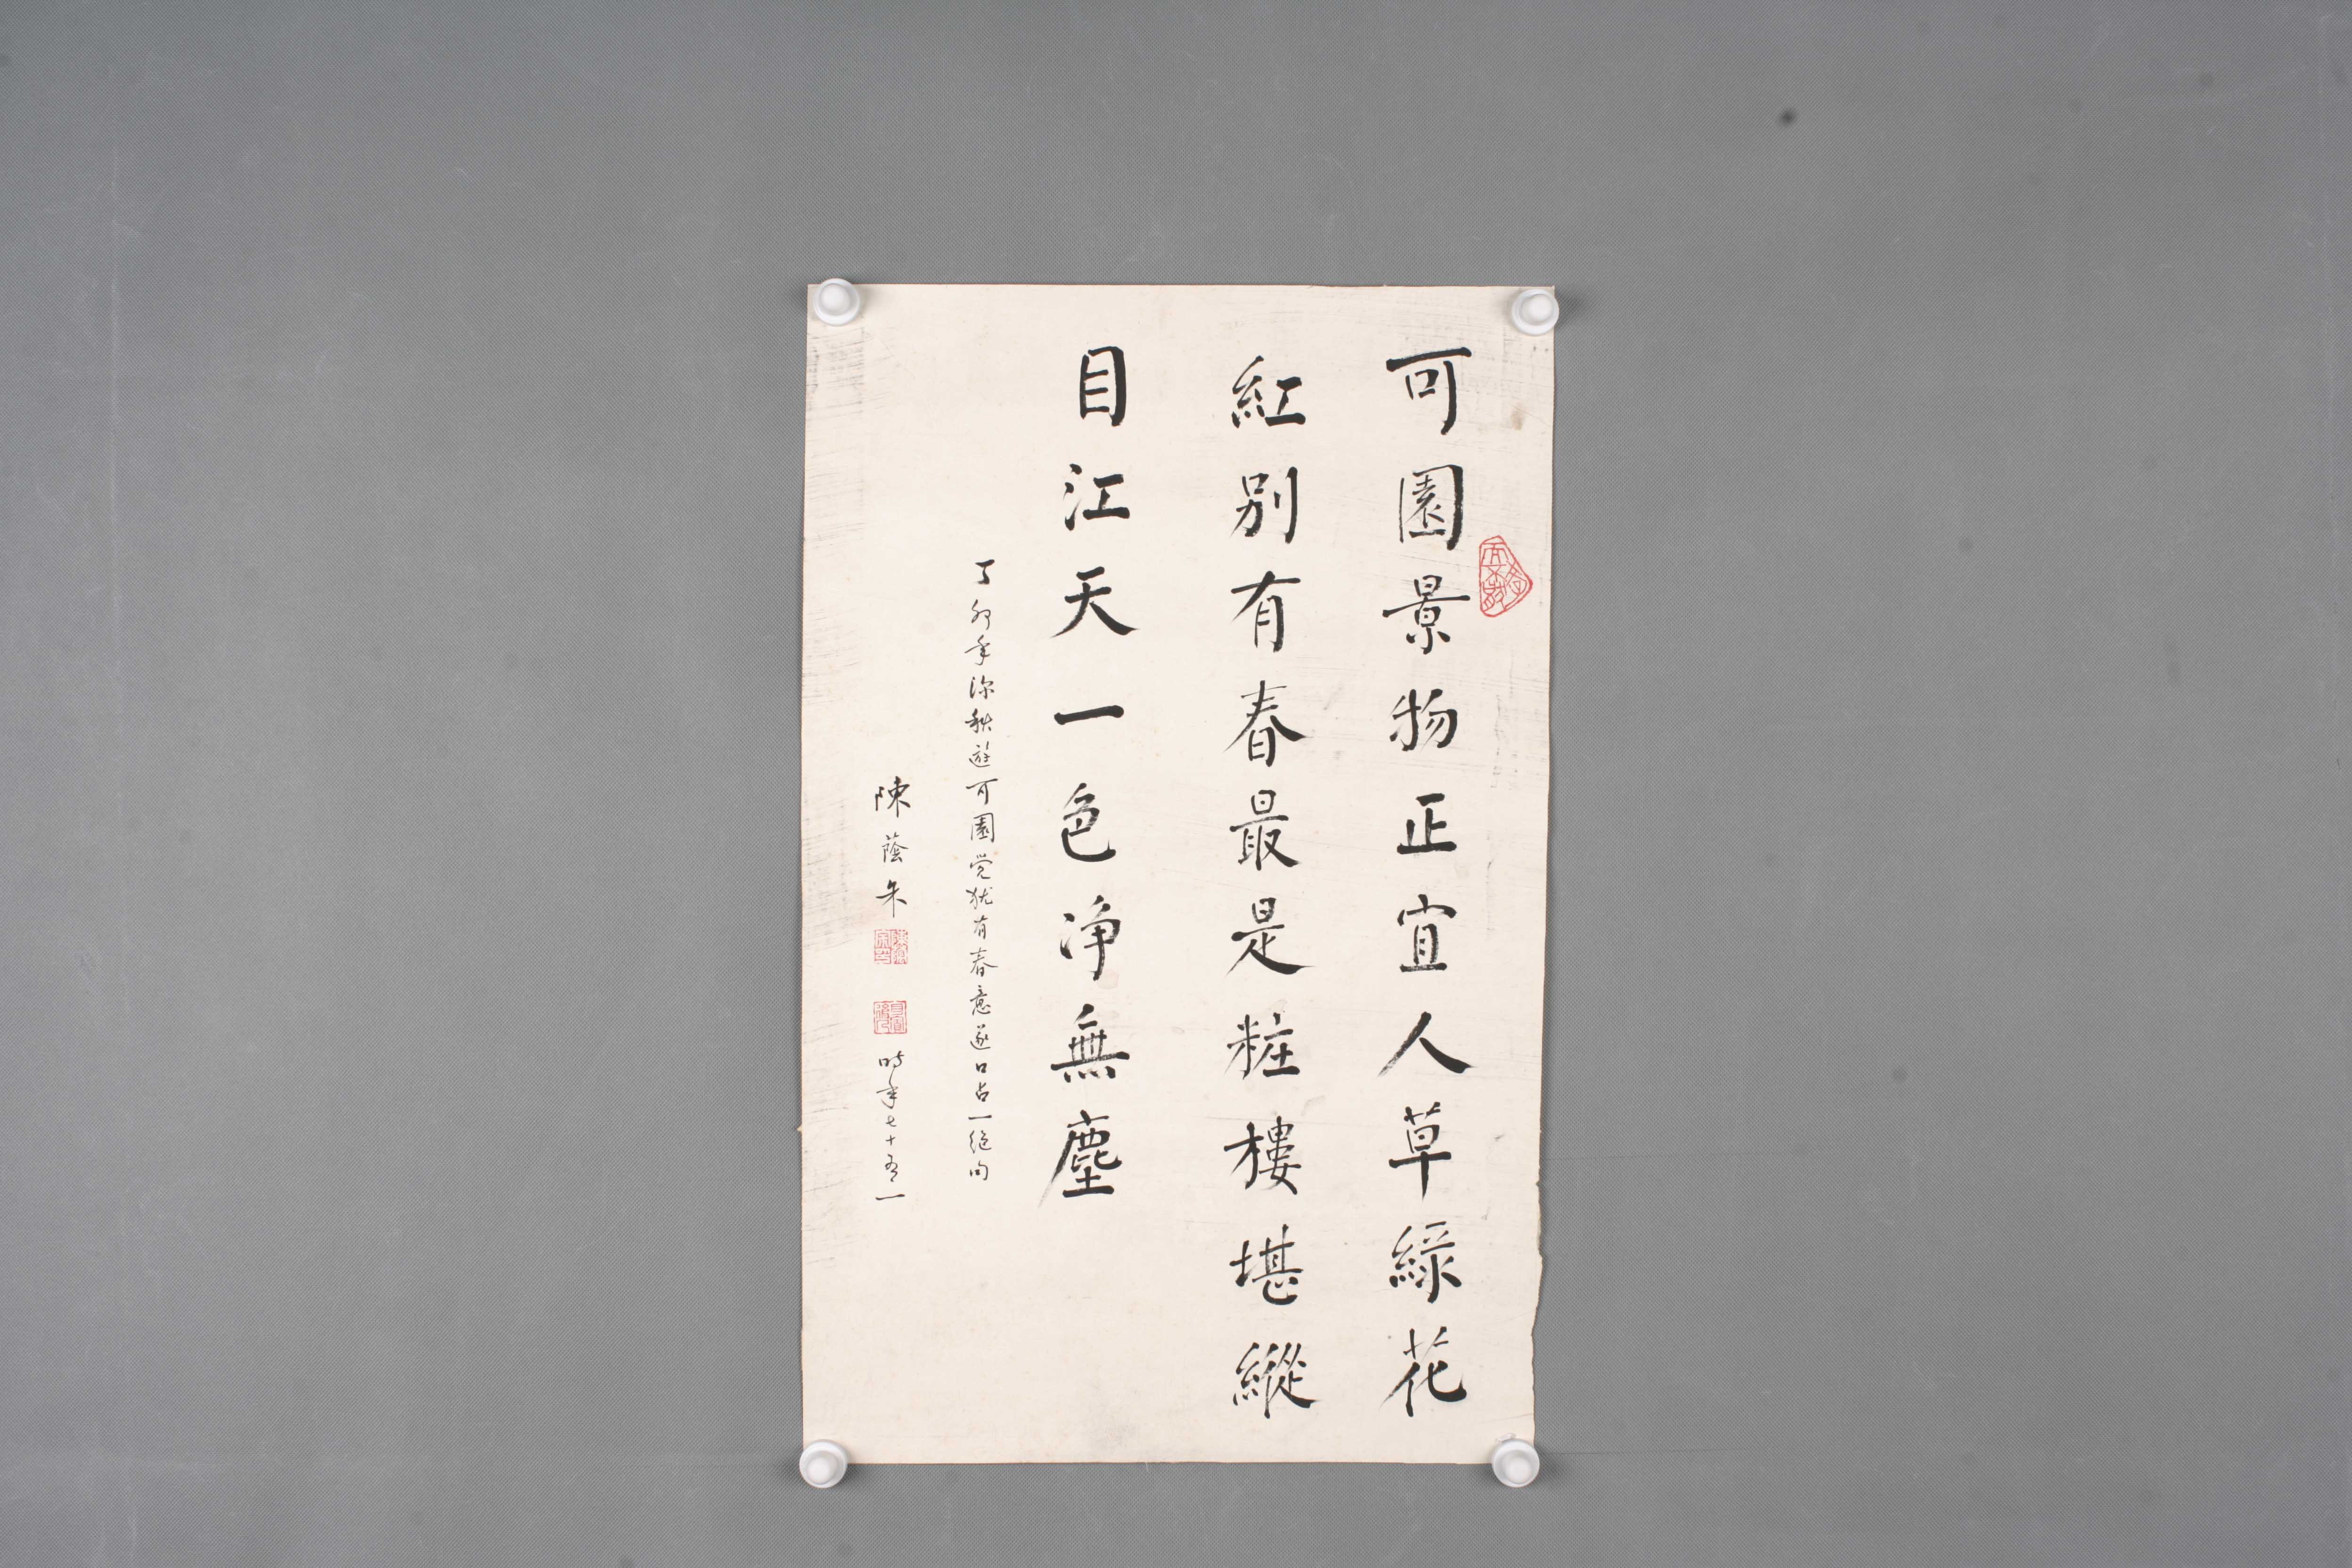 可園景物正宜人草綠花
紅別有春最是粧樓堪縱
目江天一色净無塵
丁卯年深秋遊可園觉犹有春意遂口占一绝句
陳蔭朱
時年七十有一